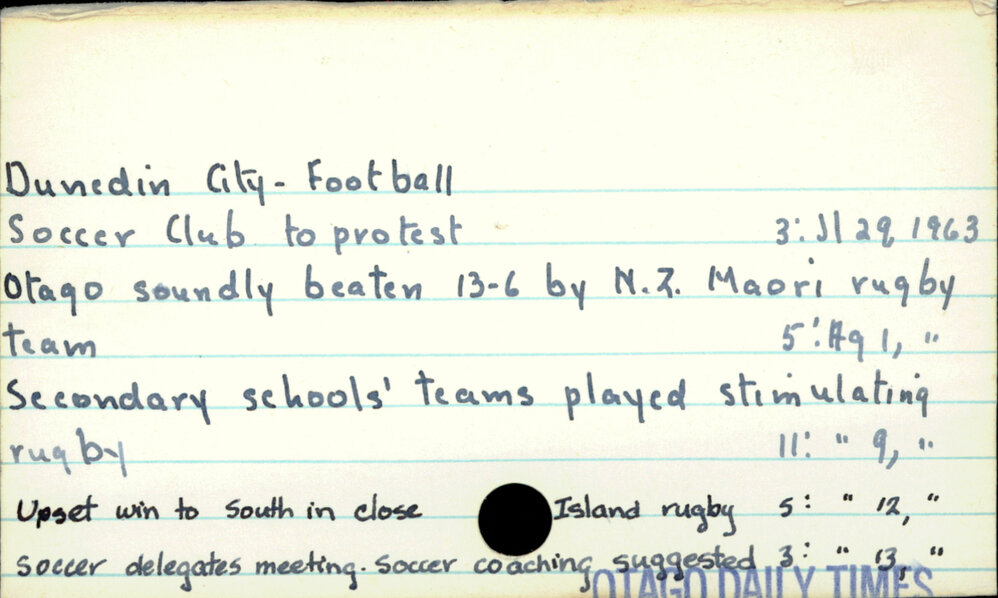 Dunedin City - Football
Soccer Club to protest 3: Jl 29, 1963
Otago soundly beaten 13-6 by N.Z. Maori rugby
team 5: Ag 1, "
Secondary schools' teams played stimulating
rugby 11: " 9, "
Upset win to South in close Island rugby 5: " 12, "
Soccer delegates meeting. Soccer coaching suggested 3: " 13, "
OTAGO DAILY TIMES